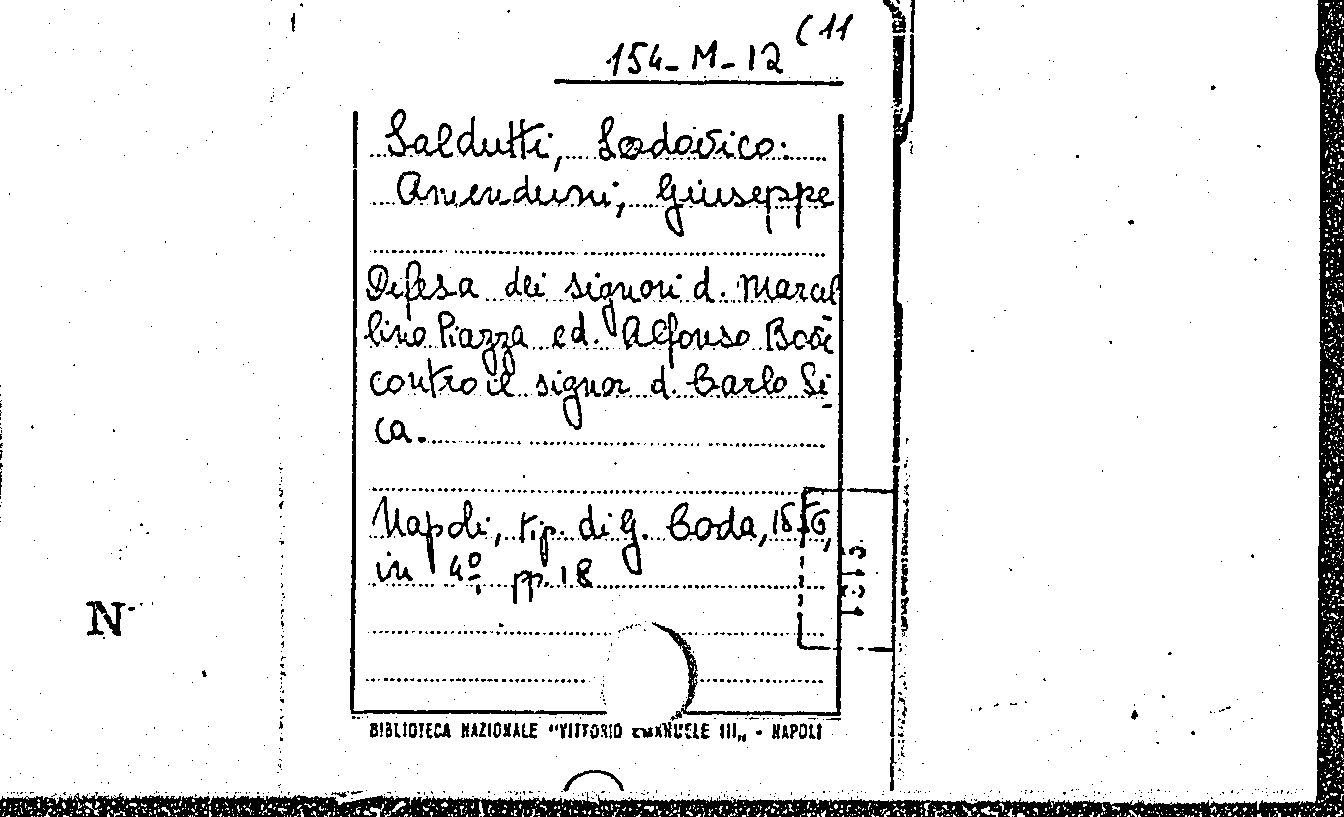 154-M-12 (11
Saldutti, Lodovico.
Amenduni, Giuseppe
Difesa dei signori d. Marcel
lino Piazza ed. Alfonso
contro il signor d. Carlo Si-
ca.
Napoli, tip. di G. Coda,
in 4º pp. 18
N
BIBLIOTECA NAZIONALE "VITTORIO EMANUELE III" - NAPOLI